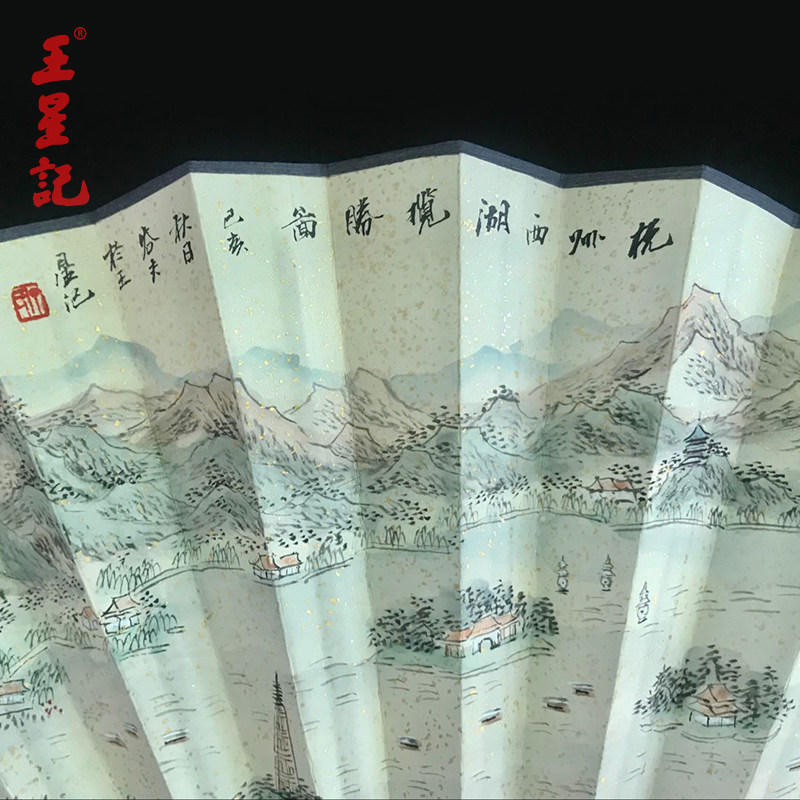 王星記®
杭州西湖攬勝啚
己亥
秋日
於王
星记